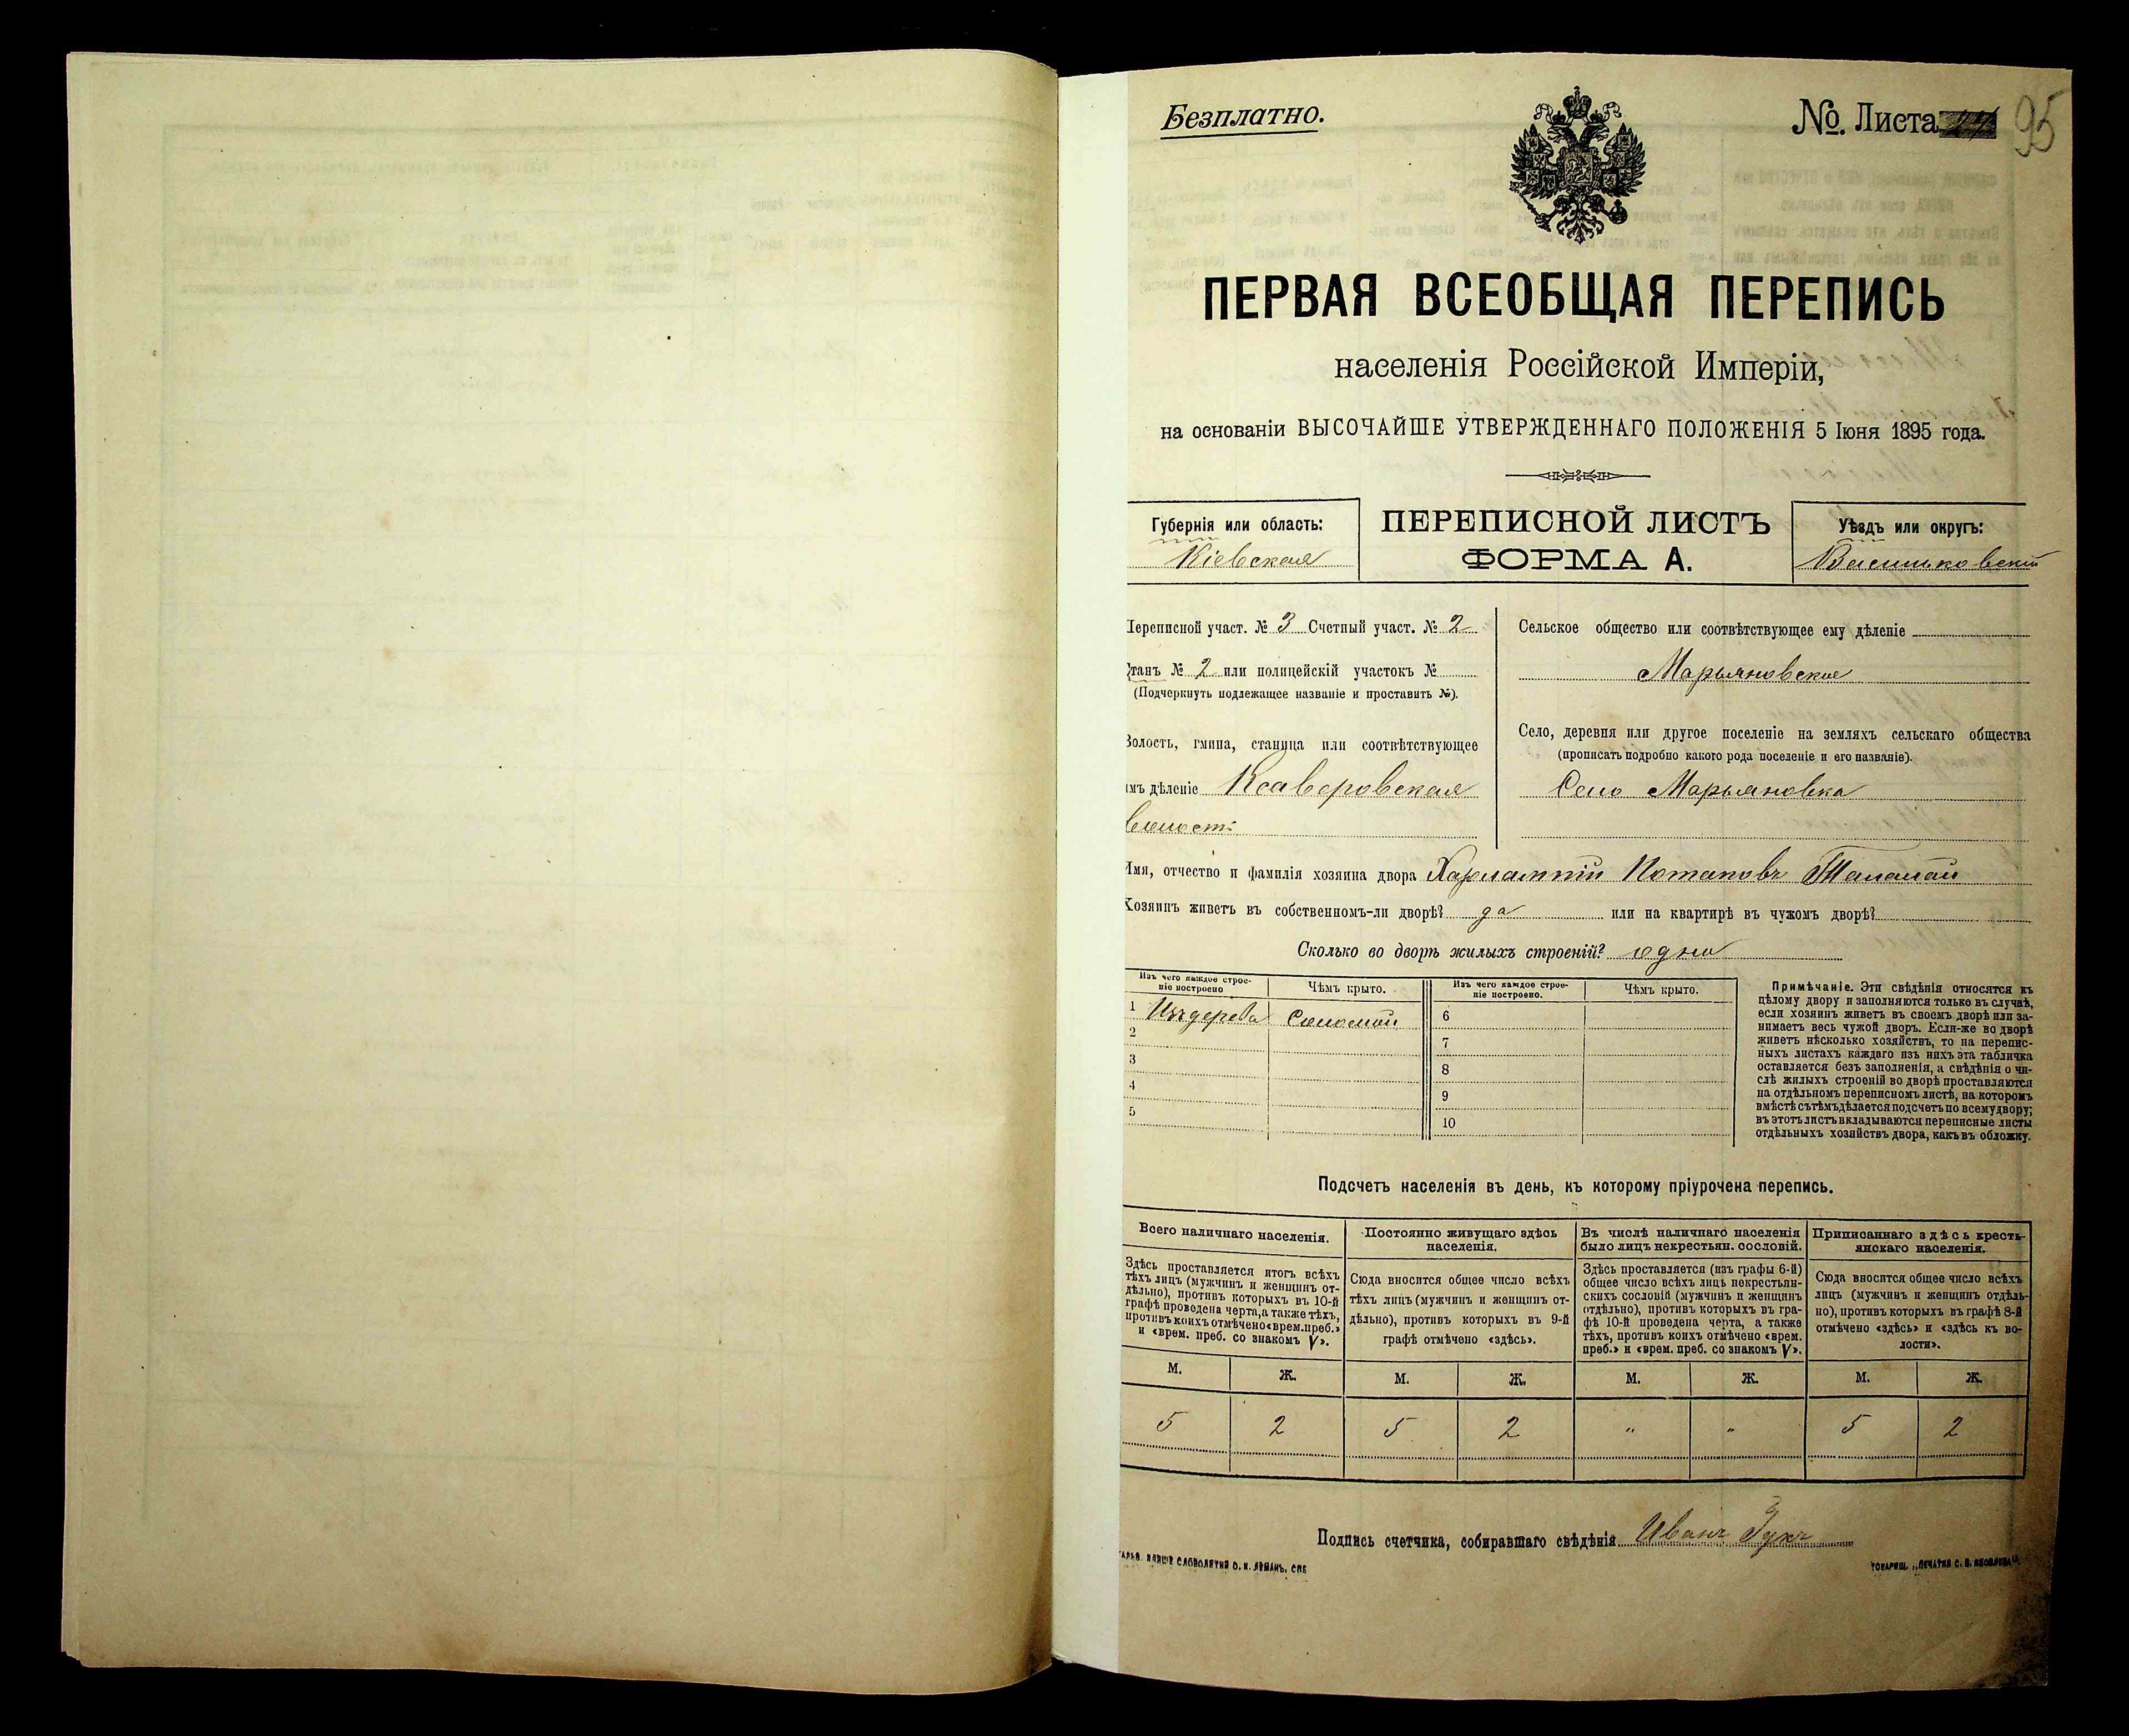 Безплатно.
№. Листа 95
ПЕРВАЯ ВСЕОБЩАЯ ПЕРЕПИСЬ
населенія Россійской Имперіи,
на основаніи ВЫСОЧАЙШЕ УТВЕРЖДЕННАГО ПОЛОЖЕНІЯ 5 Іюня 1895 года.
Губернія или область:
Кіевская
ПЕРЕПИСНОЙ ЛИСТЪ
ФОРМА А.
Уѣздъ или округъ:
Васильковскій
Переписной участ. № 3 Счетный участ. № 2
Станъ № 2 или полицейскій участокъ №
(Подчеркнуть подлежащее названіе и проставить №).
Волость, гмина, станица или соотвѣтствующее
имъ дѣленіе Ксаверовская
волость
Сельское общество или соотвѣтствующее ему дѣленіе
Марьяновское
Село, деревня или другое поселеніе на земляхъ сельскаго общества
(прописать подробно какого рода поселеніе и его названіе).
Село Марьяновка
Имя, отчество и фамилія хозяина двора Харлампій Потаповъ Таламай
Хозяинъ живетъ въ собственномъ-ли дворѣ? да или на квартирѣ въ чужомъ дворѣ?
Сколько во дворѣ жилыхъ строеній? одно
Изъ чего каждое строе-
ніе построено
Чѣмъ крыто.
Изъ чего каждое строе-
ніе построено.
Чѣмъ крыто.
1 Изъ дерева Соломой
2
3
4
5
6
7
8
9
10
Примѣчаніе. Эти свѣдѣнія относятся къ
цѣлому двору и заполняются только въ случаѣ,
если хозяинъ живетъ въ своемъ дворѣ или за-
нимаетъ весь чужой дворъ. Если-же во дворѣ
живетъ нѣсколько хозяйствъ, то на перепис-
ныхъ листахъ каждаго изъ нихъ эта табличка
оставляется безъ заполненія, а свѣдѣнія о чи-
слѣ жилыхъ строеній во дворѣ проставляются
на отдѣльномъ переписномъ листѣ, на которомъ
вмѣстѣ съ тѣмъ дѣлается подсчетъ по всему двору;
въ этотъ листъ вкладываются переписные листы
отдѣльныхъ хозяйствъ двора, какъ въ обложку.
Подсчетъ населенія въ день, къ которому пріурочена перепись.
Всего наличнаго населенія.
Здѣсь проставляется итогъ всѣхъ
тѣхъ лицъ (мужчинъ и женщинъ от-
дѣльно), противъ которыхъ въ 10-й
графѣ проведена черта, а также тѣхъ,
противъ коихъ отмѣчено «врем. преб.»
и «врем. преб. со знакомъ V».
Постоянно живущаго здѣсь
населенія.
Сюда вносится общее число всѣхъ
тѣхъ лицъ (мужчинъ и женщинъ от-
дѣльно), противъ которыхъ въ 9-й
графѣ отмѣчено «здѣсь».
Въ числѣ наличнаго населенія
было лицъ некрестьян. сословій.
Здѣсь проставляется (изъ графы 6-й)
общее число всѣхъ лицъ некрестьян-
скихъ сословій (мужчинъ и женщинъ
отдѣльно), противъ которыхъ въ гра-
фѣ 10-й проведена черта, а также
тѣхъ, противъ коихъ отмѣчено «врем.
преб.» и «врем. преб. со знакомъ V».
Приписаннаго здѣсь кресть-
янскаго населенія.
Сюда вносится общее число всѣхъ
лицъ (мужчинъ и женщинъ отдѣль-
но), противъ которыхъ въ графѣ 8-й
отмѣчено «здѣсь» и «здѣсь къ во-
лости».
М. Ж. М. Ж. М. Ж. М. Ж.
5 2 5 2 " " 5 2
Подпись счетчика, собиравшаго свѣдѣнія Иванъ
СЛОВОЛИТНЯ О. И. ЛЕМАНЪ, СПБ
ТОВАРИЩ. „ПЕЧАТНЯ С. П. ЯКОВЛЕВА".